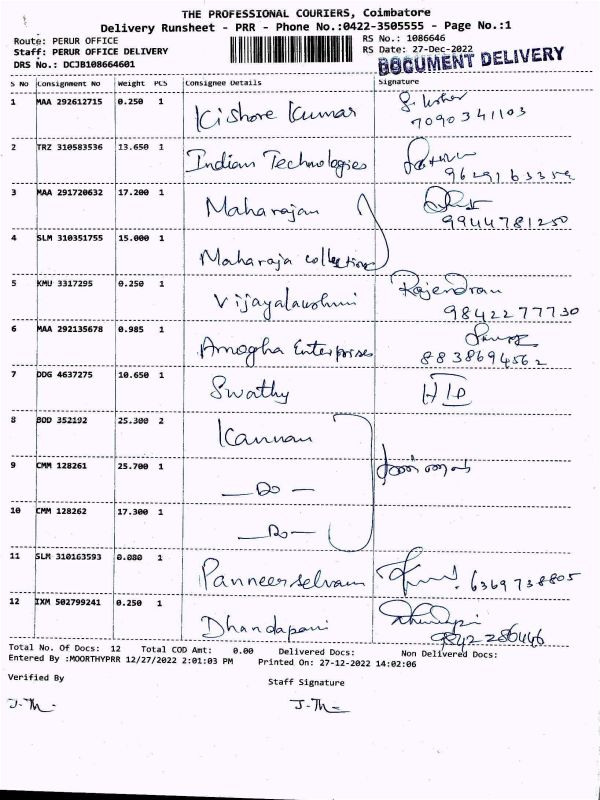 THE PROFESSIONAL COURIERS, Coimbatore
Delivery Runsheet - PRR - Phone No.:0422-3505555 - Page No.:1
Route: PERUR OFFICE RS No.: 1086646
Staff: PERUR OFFICE DELIVERY RS Date: 27-Dec-2022
DRS No.: DCJB108664601 DOCUMENT DELIVERY
S No Consignment No Weight PCS Consignee Details Signature
1 MAA 292612715 0.250 1 Kishore Kumar
7090341103
2 TRZ 310583536 13.650 1 Indian Technologies
3 MAA 291720632 17.200 1 Maharajan
9944781250
4 SLM 310351755 15.000 1 Maharaja collections
5 KMU 3317295 0.250 1 Vijayalakshmi Rajendran
9842277730
6 MAA 292135678 0.985 1 Amogha Enterprises
8838694562
7 DDG 4637275 10.650 1 Swathy
8 BOD 352192 25.300 2 Kannan
9 CMM 128261 25.700 1 — Do —
10 CMM 128262 17.300 1 — Do —
11 SLM 310163593 0.080 1 Panneerselvam 6369738805
12 IXM 502799241 0.250 1 Dhandapani
9842286446
Total No. Of Docs: 12 Total COD Amt: 0.00 Delivered Docs: Non Delivered Docs:
Entered By :MOORTHYPRR 12/27/2022 2:01:03 PM Printed On: 27-12-2022 14:02:06
Verified By Staff Signature